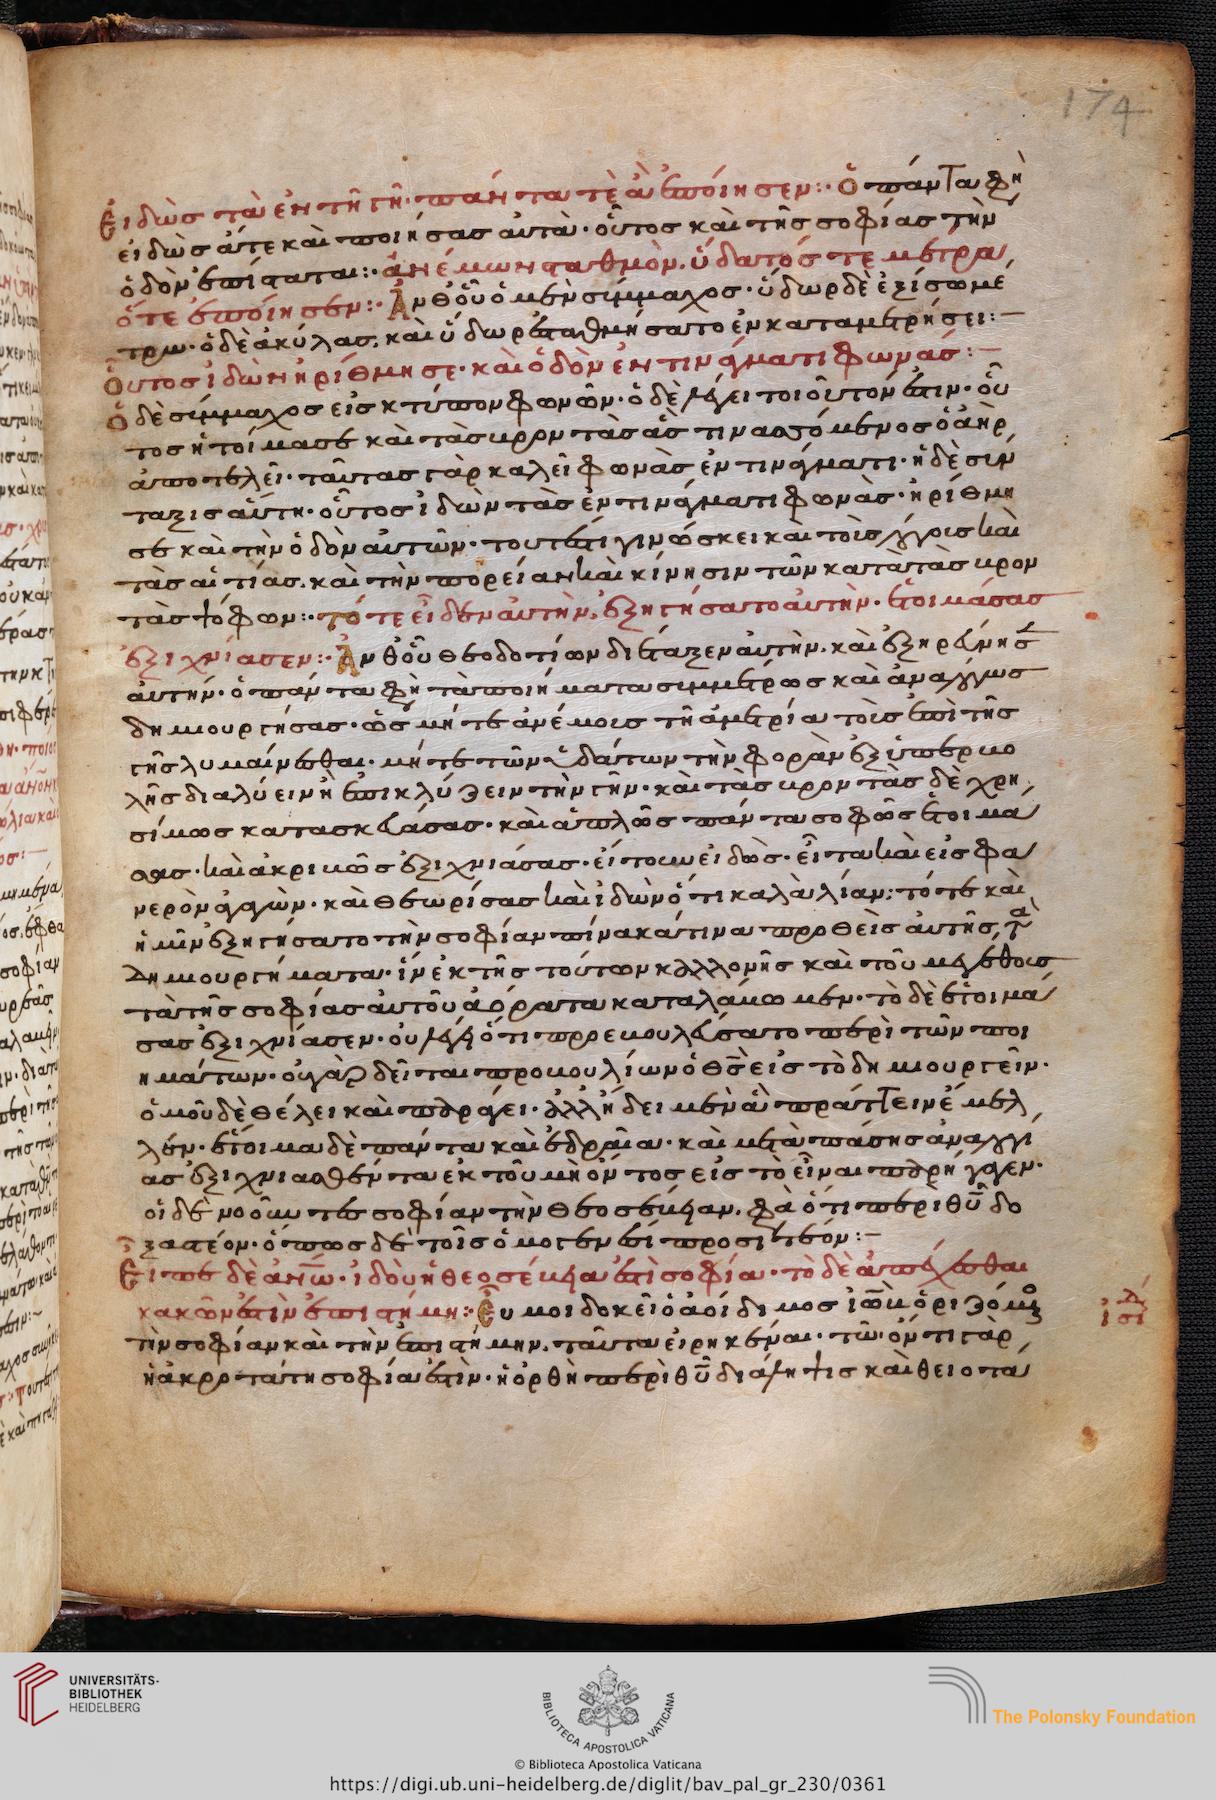 174
Εἰδὼς τὰ ἐν τῆ γῆ πάντα τὲ ἃ ἐποίησεν:· Ὁ πάντα φὴ
εἰδὼς ἅτε καὶ ποιήσας αὐτὰ· οὗτος καὶ τῆς σοφίας τὴν
ὁδὸν ἐπίσταται:· ἀνέμων σταθμὸν, ὕδατός τε μέτρα,
ὅτε ἐποίησεν:· Ἀνθ' οὗ ὁ μὲν σύμμαχος· ὕδωρ δὲ ἐξίσω μέ
τρω· ὁ δὲ ἀκύλας, καὶ ὕδωρ ἐσταθμήσατο ἐν καταμετρήσει:—
Οὕτος ἰδὼν ἠρίθμησε· καὶ ὁδὸν ἐν τινάγματι φωνάς:—
Ὁ δὲ σύμμαχος εἰς κτύπον φωνῶν· ὁ δὲ λέγει τοιοῦτόν ἐστιν· οὗ
τος ἡτοίμασε καὶ τὰς βροντὰς ἃς τινασσόμενος ὁ ἀὴρ
ἀποτελεῖ· ταύτας γὰρ καλεῖ φωνὰς ἐν τινάγματι· ἡ δὲ σύν
ταξις αὕτη· οὗτος ἰδὼν τὰς ἐν τινάγματι φωνὰς· ἠρίθμη
σε καὶ τὴν ὁδὸν αὐτῶν· τουτέστι γινώσκει καὶ τοὺς λόγους καὶ
τὰς αἰτίας, καὶ τὴν πορείαν καὶ κίνησιν τῶν κατὰ τὰς βρον
τὰς ψόφων:· τότε εἶδεν αὐτὴν, ἐξηγήσατο αὐτὴν· ἑτοιμάσας
ἐξιχνίασεν:· Ἀνθ' οὗ θεοδοτίων διέταξεν αὐτὴν, καὶ ἐξηρεύνησεν
αὐτήν· ὁ πάντα φὴ τὰ ποιήματα συμμέτρως καὶ ἀναλόγως
δημιουργήσας· ὡς μήτε ἀνέμους τῆ ἀμετρία τοῖς ἐπὶ τῆς
γῆς λυμαίνεσθαι· μήτε τῶν ὑδάτων τὴν φορὰν ἐξ ὑπερβο
λῆς διαλύειν ἢ ἐπικλύζειν τὴν γῆν· καὶ τὰς βροντὰς δὲ χρη
σίμως κατασκευάσας· καὶ ἁπλῶς πάντα σοφῶς ἑτοιμά
σας· καὶ ἀκριβῶς ἐξιχνιάσας· εἴτουν εἰδὼς· εἶτα καὶ εἰς φα
νερὸν ἀγαγὼν· καὶ θεωρήσας καὶ ἰδὼν ὅτι καλὰ λίαν: τότε καὶ
ἡμῖν ἐξηγήσατο τὴν σοφίαν πίνακά τινα προθεὶς αὐτῆς, τὰ
δημιουργήματα· ἵν' ἐκ τῆς τούτων καλλονῆς καὶ τοῦ μεγέθους
τὰ τῆς σοφίας αὐτοῦ ἀόρατα καταλάβωμεν· τὸ δὲ ἑτοιμά
σας ἐξιχνίασεν· οὐ λέγει ὅτι προεβουλεύσατο περὶ τῶν ποι
ημάτων· οὐ γὰρ δεῖται προβουλίων ὁ θς εἰς τὸ δημιουργεῖν·
ὁμοῦ δὲ θέλει καὶ παράγει· ἀλλ' ἤδει μὲν ἃ πράττειν ἔμελ
λεν· ἕτοιμα δὲ πάντα καὶ ἑδραῖα· καὶ μετὰ πάσης ἀναλογί
ας ἐξιχνιασθέντα ἐκ τοῦ μὴ ὄντος εἰς τὸ εἶναι παρήγαγεν·
οἱ δὲ νοοῦντες σοφίαν τὴν θεοσέβειαν, φασὶ ὅτι περὶ θυ δο
ξαστέον· ὅπως δὲ τοῖς ὁμογενέσι προσιτέον:—
Εἶπε δὲ ἀνω· ἰδοὺ ἡ θεοσέβεια ἐστὶ σοφία· τὸ δὲ ἀπέχεσθαι
κακῶν ἐστὶν ἐπιστήμη:· Εὖ μοι δοκεῖ ὁ ἀοίδιμος ἰὼβ ὁριζόμενος
τὴν σοφίαν καὶ τὴν ἐπιστήμην, ταῦτα εἰρηκέναι· τῶ ὄντι γὰρ
ἡ ἀκροτάτη σοφία ἐστὶν· ἡ ὀρθὴ περὶ θυ διάληψις καὶ θειοτά
UNIVERSITÄTS-
BIBLIOTHEK
HEIDELBERG
BIBLIOTECA APOSTOLICA VATICANA
The Polonsky Foundation
© Biblioteca Apostolica Vaticana
https://digi.ub.uni-heidelberg.de/diglit/bav_pal_gr_230/0361